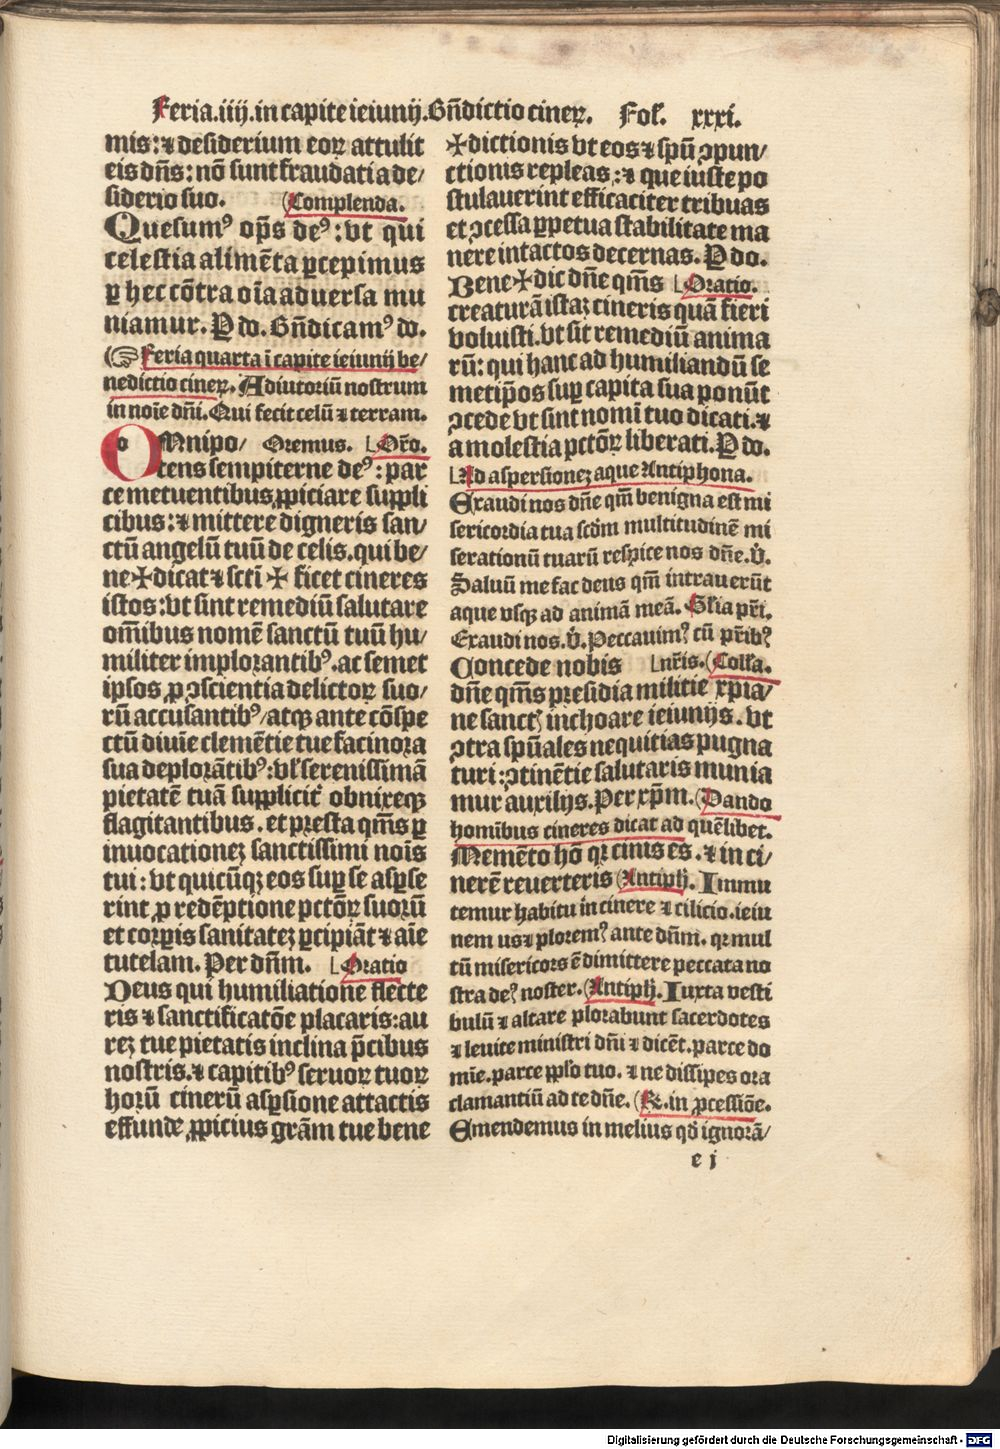 Feria.iiij.in capite ieiunij.Bñdictio cineꝝ. Fol. xxxi.
mis:⁊ desiderium eoꝝ attulit
eis dñs: nō sunt fraudati a de/
siderio suo. (Complenda.
Quesumꝰ op̄s deꝰ:vt qui
celestia alimēta ꝑcepimus
ꝑ hec cōtra oīa aduersa mu
niamur.P do. Bñdicamꝰ do.
(☞ Feria quarta ī capite ieiunij be/
nedictio cineꝝ. Adiutoriū nostrum
in noīe dñi.Qui fecit celū ⁊ terram.
Omnipo/ Oremus. Orō.
tens sempiterne deꝰ: par
ce metuentibus,ꝓpiciare suppli
cibus:⁊ mittere digneris san/
ctū angelū tuū de celis.qui be/
ne✠dicat ⁊ sctī✠ficet cineres
istos:vt sint remediū salutare
om̄ibus nomē sanctū tuū hu/
militer implorantibꝰ.ac semet
ipsos ꝓ ↄscientia delictoꝝ suo/
rū accusantibꝰ/atqꝫ ante cōspe
ctū diuīe clemētie tue facinora
sua deplorātibꝰ:vl' serenissimā
pietatē tuā supplicit' obnixeqꝫ
flagitantibus.et presta qm̄s ꝑ
inuocationeꝫ sanctissimi noīs
tui:vt quicūqꝫ eos suꝑ se asꝑse
rint ꝓ redēptione pctōꝝ suorū
et corꝑis sanitateꝫ ꝑcipiāt ⁊ aīe
tutelam.Per dñm. Oratio
Deus qui humiliatione flecte
ris ⁊ sanctificatōe placaris:au
reꝫ tue pietatis inclina p̄cibus
nostris.⁊ capitibꝰ seruoꝝ tuoꝝ
horū cinerū asꝑsione attactis
effunde ꝓpicius grām tue bene
✠dictionis vt eos ⁊ spū ↄpun/
ctionis repleas:⁊ que iuste po
stulauerint efficaciter tribuas
et ↄcessa ꝑpetua stabilitate ma
nere intactos decernas.P do.
Bene✠dic dñe qm̄s Oratio.
creaturā istaꝫ cineris quā fieri
voluisti.vt sit remediū anima
rū: qui hanc ad humiliandū se
metip̄os suꝑ capita sua ponūt
ↄcede vt sint nomī tuo dicati.⁊
a molestia pctōꝝ liberati.P do.
Ad aspersioneꝫ aque Antiphona.
Exaudi nos dñe qm̄ benigna est mi
sericordia tua scdm multitudinē mi
serationū tuarū respice nos dñe.v̊.
Saluū me fac deus qm̄ intrauerūt
aque vsqꝫ ad animā meā.Gl'ia pr̄i.
Exaudi nos.v̊.Peccauimꝰ cū pr̄ibꝰ
Concede nobis nr̄is.(Coll'a.
dñe qm̄s presidia militie xpia/
ne sanctꝭ inchoare ieiunijs.vt
ↄtra spūales nequitias pugna
turi:ↄtinētie salutaris munia
mur auxilijs.Per xp̄m.(Dando
homībus cineres dicat ad quēlibet.
Memēto hō qꝛ cinis es.⁊ in ci/
nerē reuerteris (Antiph̄. Immu
temur habitu in cinere ⁊ cilicio.ieiu
nem us ⁊ ploremꝰ ante dñm.qꝛ mul
tū misericors ē dimittere peccata no
stra deꝰ noster.(Antiph̄.Iuxta vesti
bulū ⁊ altare plorabunt sacerdotes
⁊ leuite ministri dñi ⁊ dicēt.parce do
mīe.parce ppl'o tuo.⁊ ne dissipes ora
clamantiū ad te dñe.(℟.in ꝓcessiōe.
Emendemus in melius qd̓ ignorā/
e j
Digitalisierung gefördert durch die Deutsche Forschungsgemeinschaft - DFG